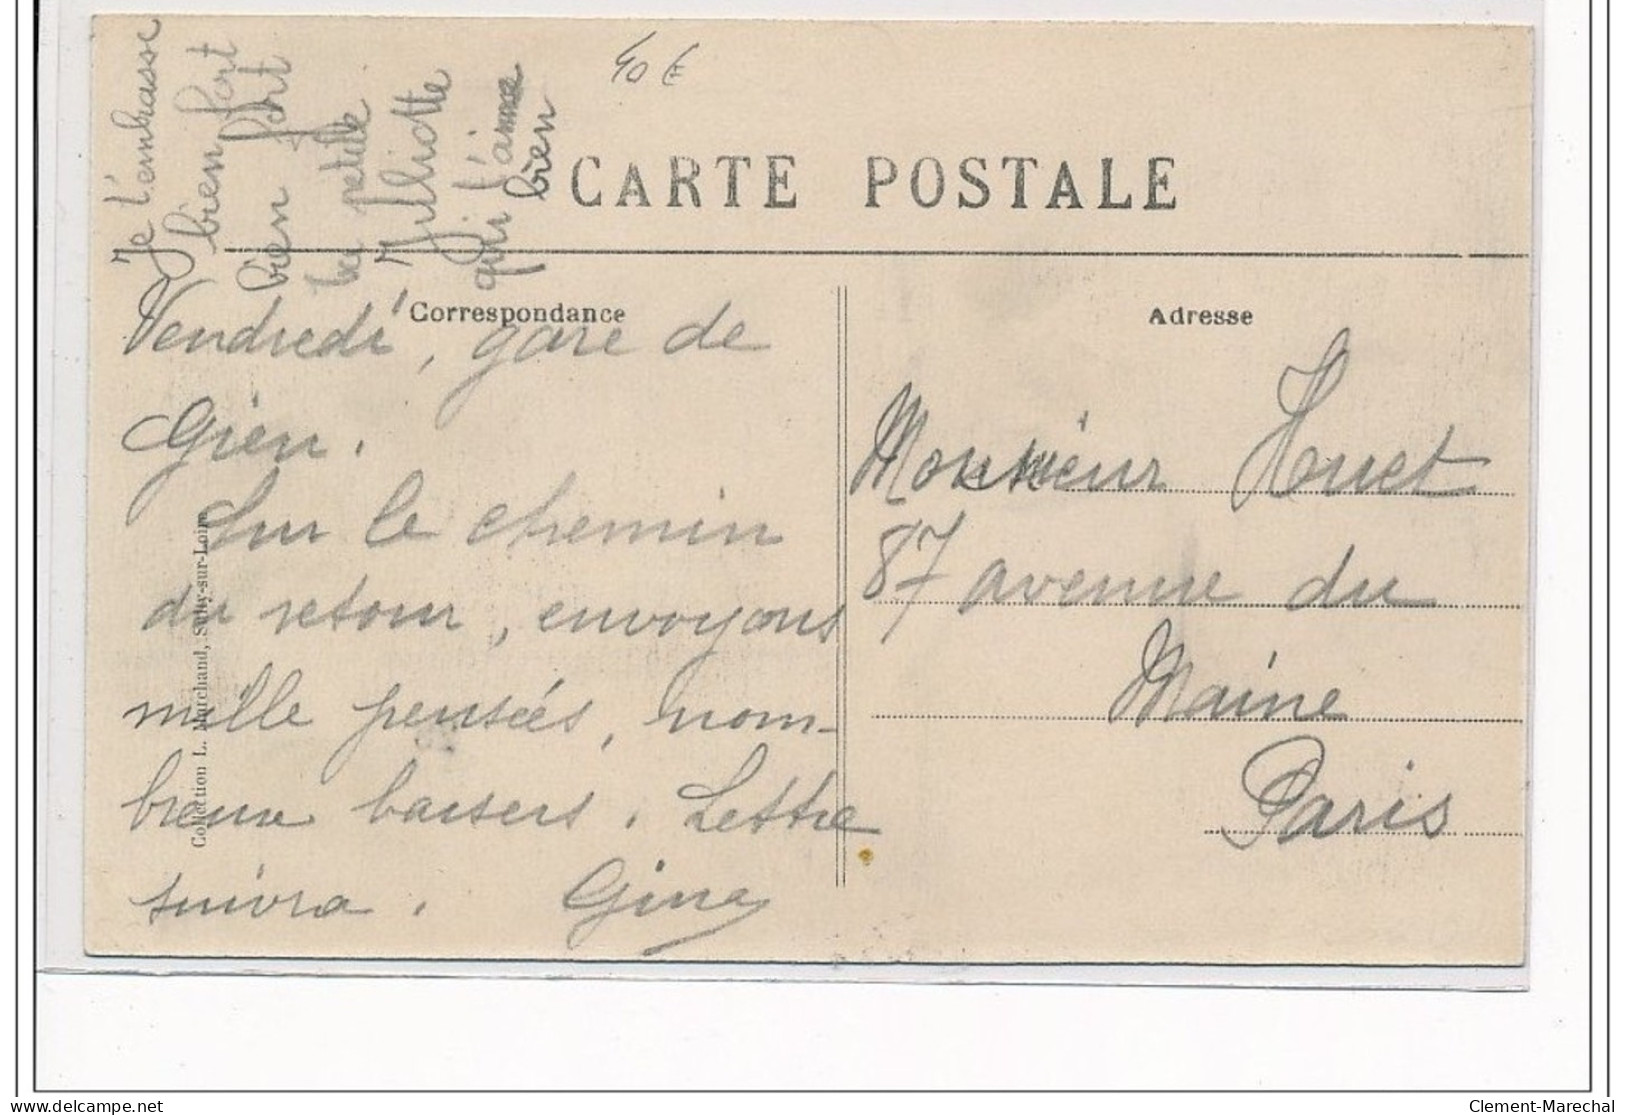 Je t'embrasse
bien fort
bien fort
ta petite
Juliotte
qui t'aime
bien
40 €
CARTE POSTALE
Correspondance
Adresse
Vendredi, gare de
Gien.
Sur le chemin
du retour, envoyons
mille pensées, nom-
breux baisers. Lettre
suivra. Gina
Monsieur Houet
87 avenue du
Maine
Paris
Collection L. Marchand, Sully-sur-Loire
Clement-Marechal